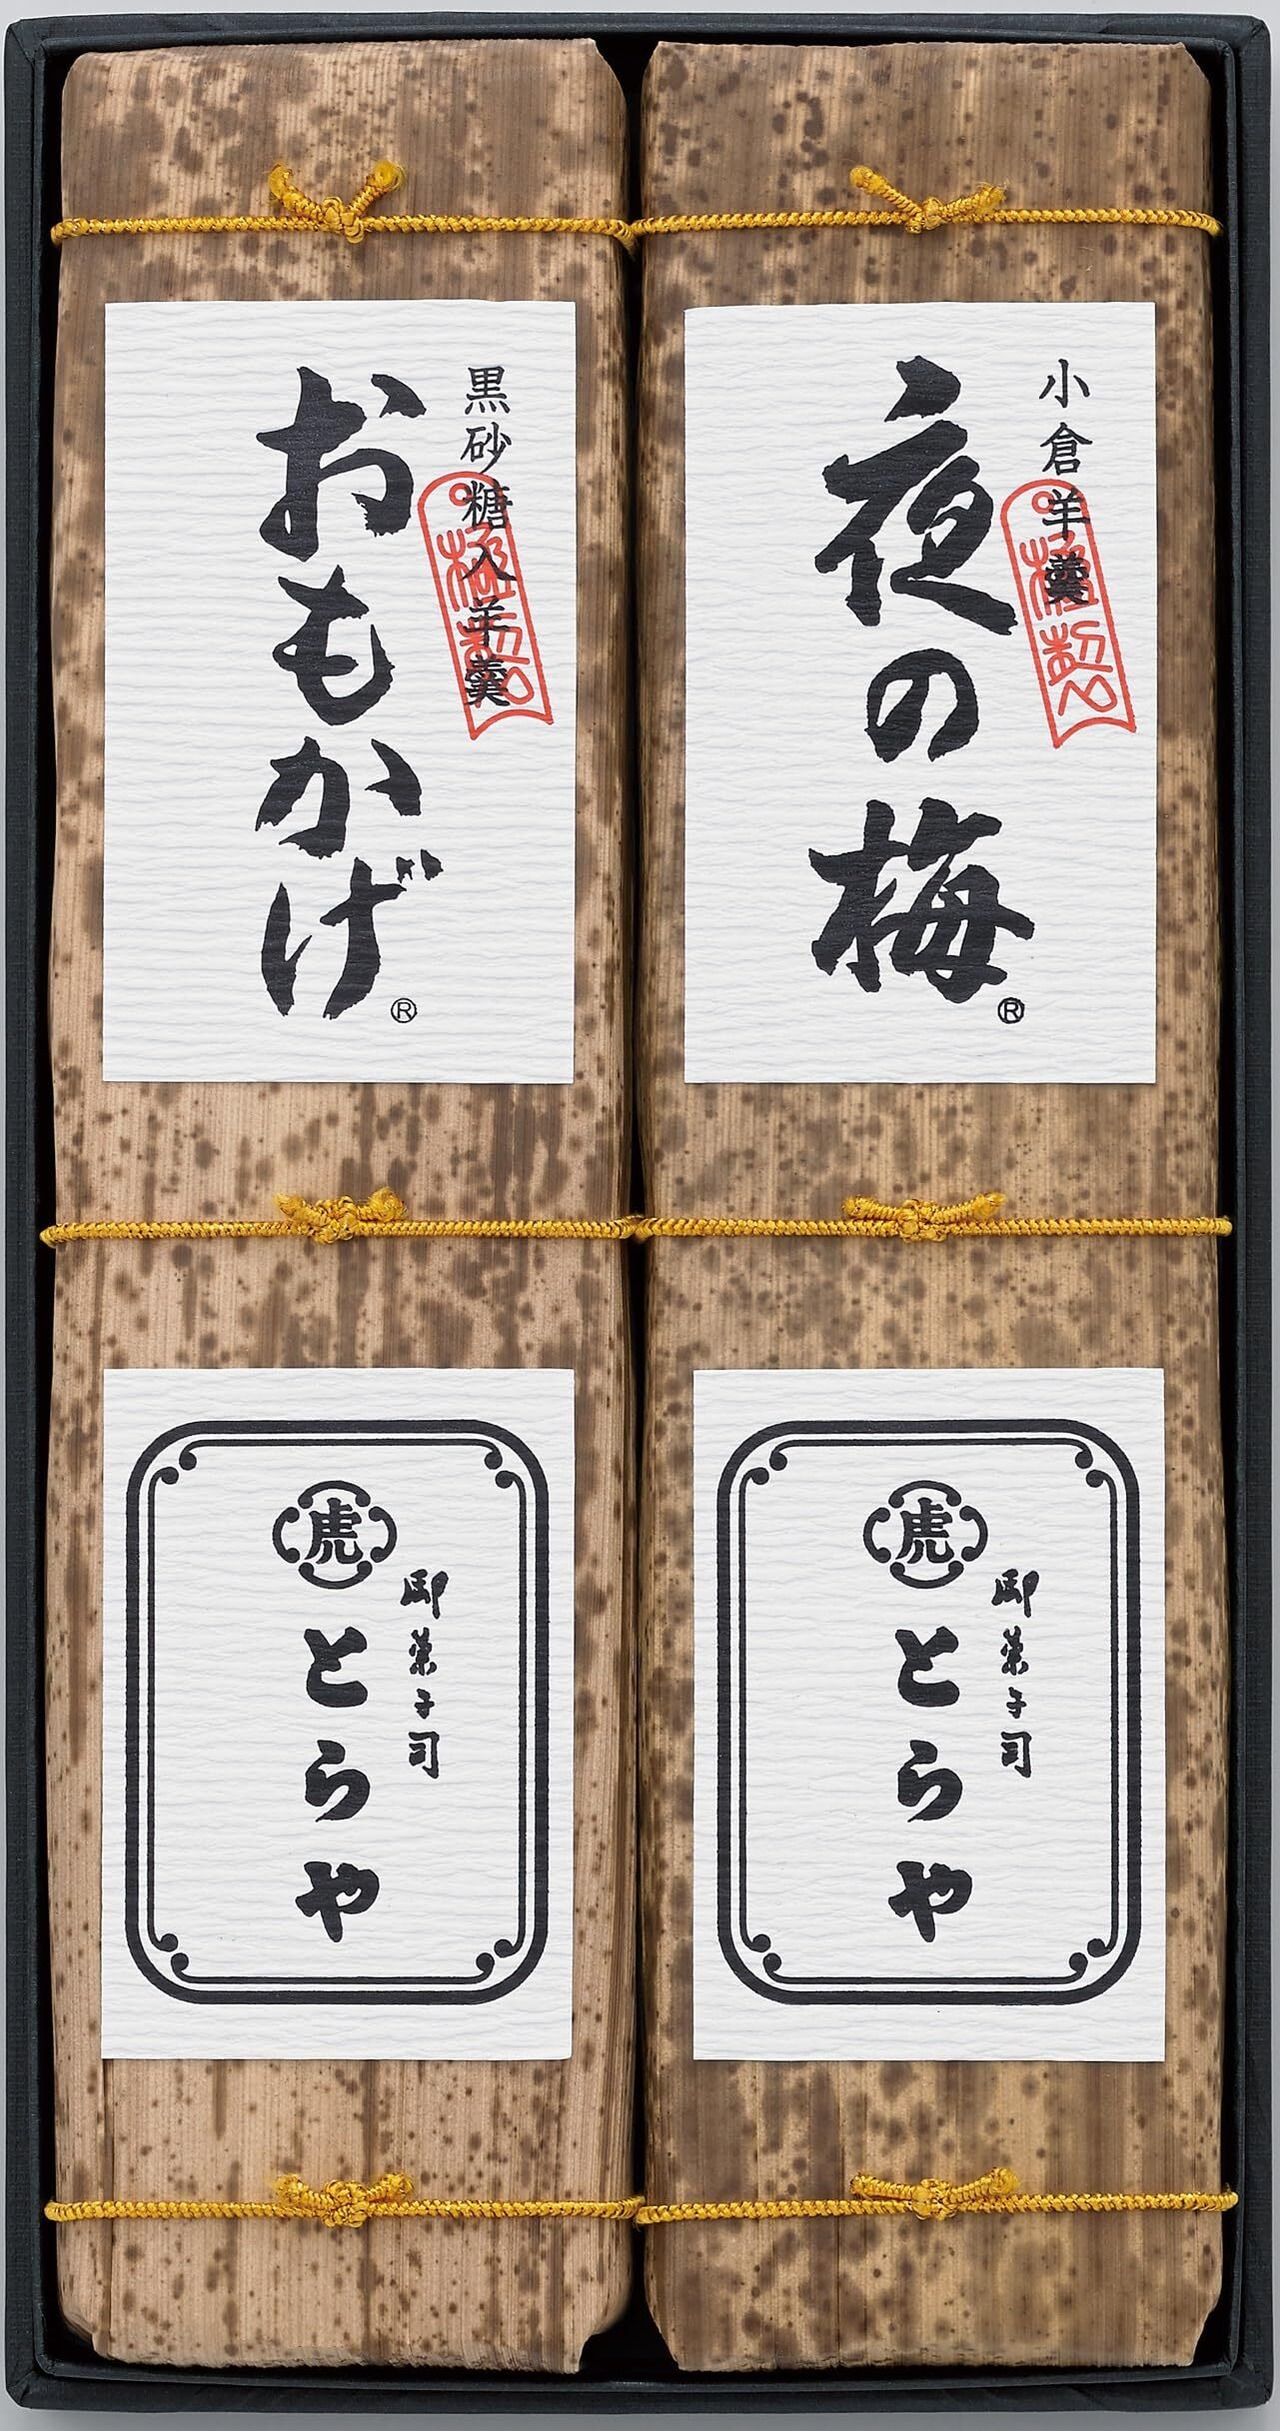 小倉羊羹
夜の梅®
黒砂糖入羊羹
おもかげ®
虎
御菓子司
とらや
虎
御菓子司
とらや